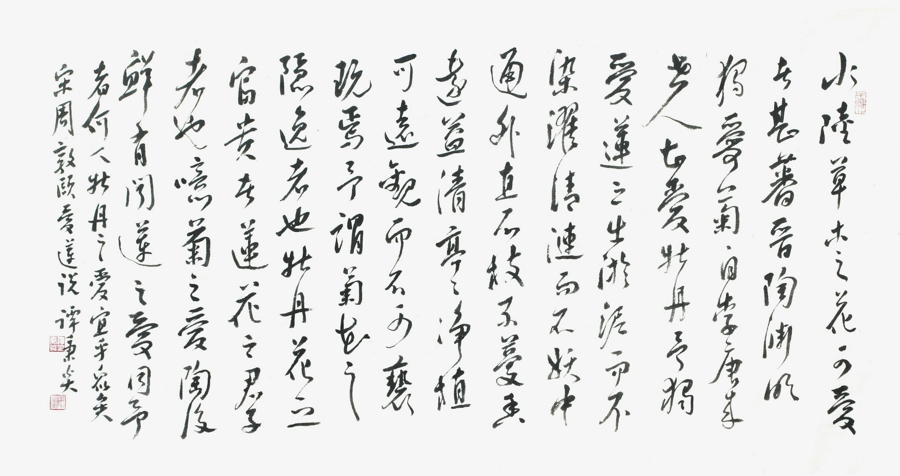 水陸草木之花可愛
者甚蕃晉陶淵明
獨愛菊自李唐來
世人甚愛牡丹予獨
愛蓮之出淤泥而不
染濯清漣而不妖中
通外直不枝不蔓香
遠益清亭々净植
可遠觀而不可褻
玩焉予謂菊花之
隱逸者也牡丹花之
富貴者蓮花之君子
者也噫菊之愛陶後
鮮有聞蓮之愛同予
者何人牡丹之愛宜乎衆矣
宋周敦頤愛蓮説 譚秉炎